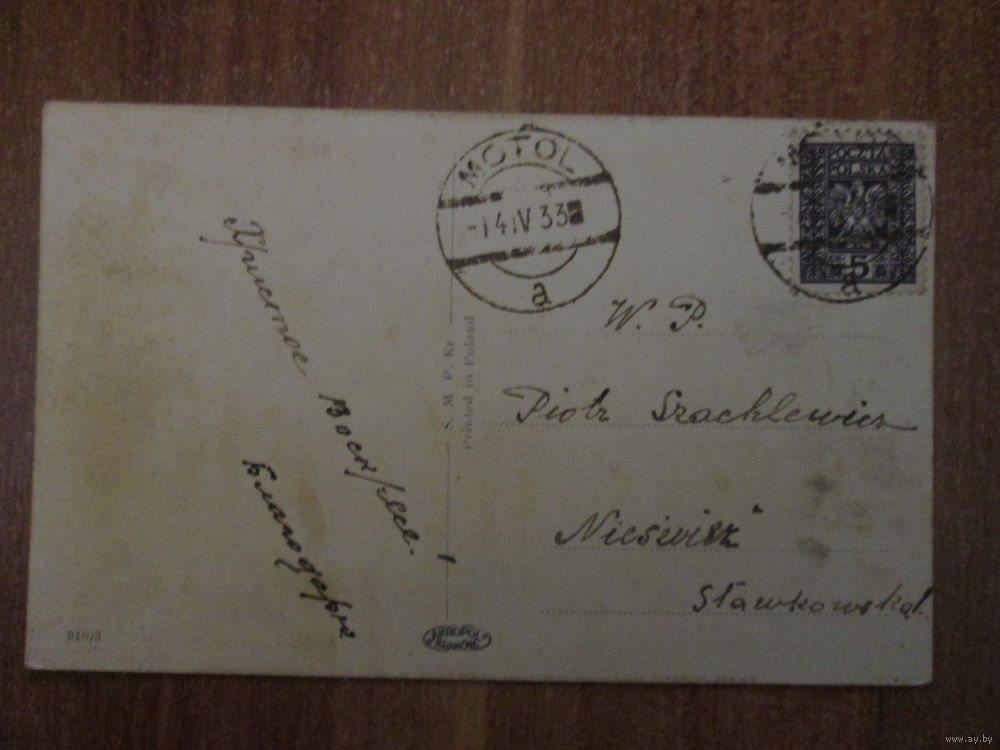 Христос
Воскресе.
Благодарю
910/3
MOTOL
-14 IV 33
a
S. M. P. Kr
Printed in Poland
AKROPOL
KRAKÓW
POCZTA
POLSKA
GR 5
a
W. P.
Piotr Szachlewicz
Nieśwież
Sławkowska 1.
www.ay.by